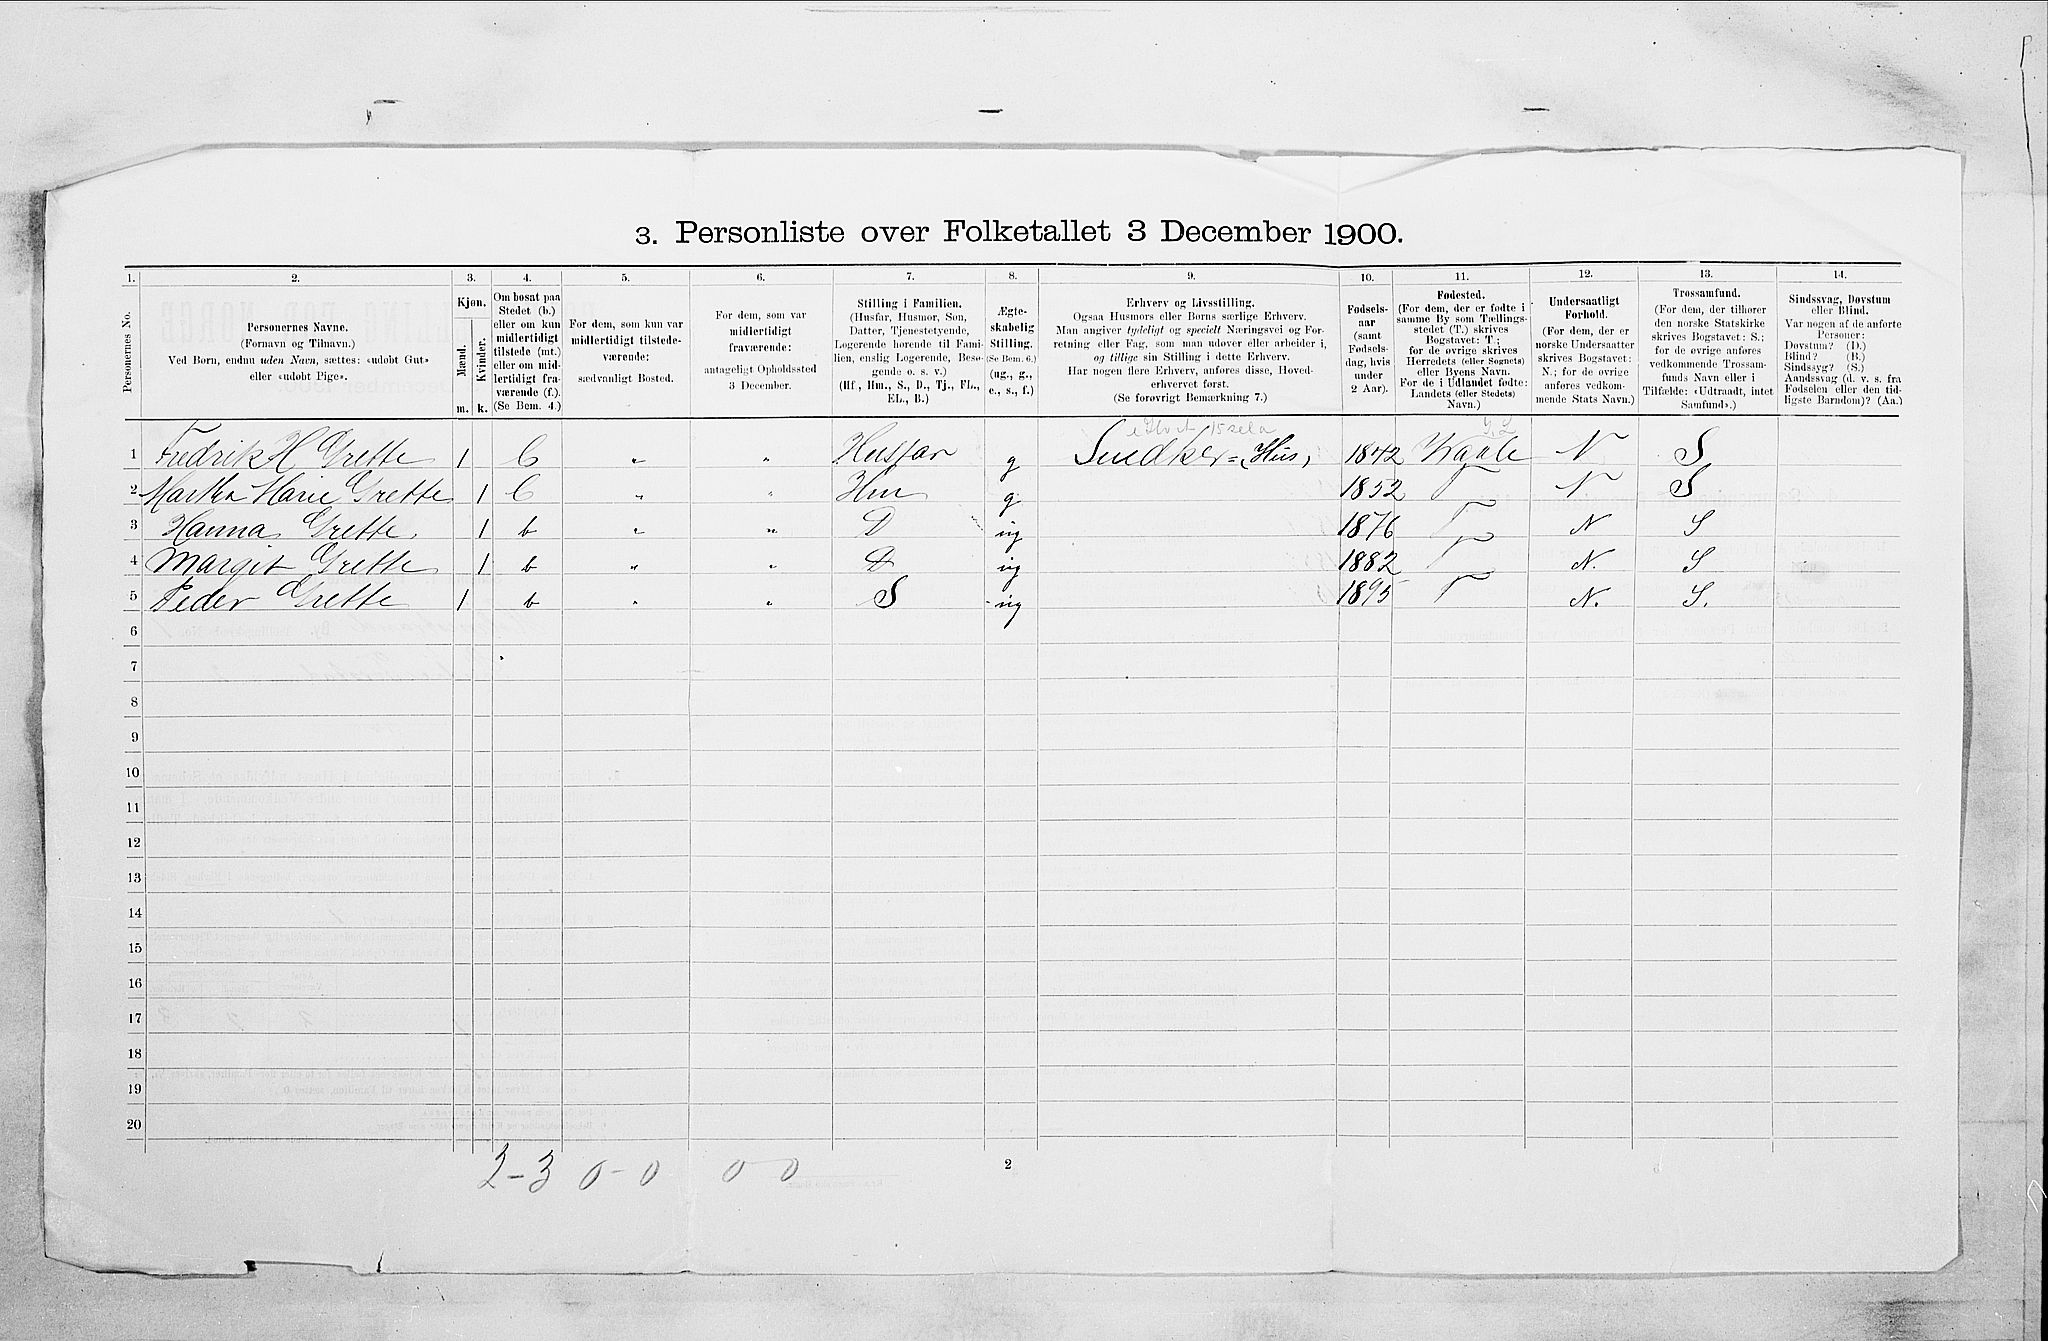 3. Personliste over Folketallet 3 December 1900.
1. 2. 3. 4. 5. 6. 7. 8. 9. 10. 11. 12. 13. 14.
Personernes No.
Personernes Navne.
(Fornavn og Tilnavn.)
Ved Børn, endnu uden Navn, sættes: «udøbt Gut»
eller «udøbt Pige».
Kjøn.
Mænd.
Kvinder.
m. k.
Om bosat paa
Stedet (b.)
eller om kun
midlertidigt
tilstede (mt.)
eller om mid-
lertidigt fra-
værende (f.).
(Se Bem. 4.)
For dem, som kun var
midlertidigt tilstede-
værende:
sædvanligt Bosted.
For dem, som var
midlertidigt
fraværende:
antageligt Opholdssted
3 December.
Stilling i Familien.
(Husfar, Husmor, Søn,
Datter, Tjenestetyende,
Logerende hørende til Fami-
lien, enslig Logerende, Besø-
gende o. s. v.)
(Hf, Hm., S., D., Tj., FL.,
EL., B.)
Ægte-
skabelig
Stilling.
(Se Bem. 6.)
(ug., g.,
e., s., f.)
Erhverv og Livsstilling.
Ogsaa Husmors eller Børns særlige Erhverv.
Man angiver tydeligt og specielt Næringsvei og For-
retning eller Fag, som man udøver eller arbeider i,
og tillige sin Stilling i dette Erhverv.
Har nogen flere Erhverv, anføres disse, Hoved-
erhvervet først.
(Se forøvrigt Bemærkning 7.)
Fødsels-
aar
(samt
Fødsels-
dag, hvis
under
2 Aar).
Fødested.
(For dem, der er fødte i
samme By som Tællings-
stedet (T.) skrives
Bogstavet: T.;
for de øvrige skrives
Herredets (eller Sognets)
eller Byens Navn.
For de i Udlandet fødte:
Landets (eller Stedets)
Navn.)
Undersaatligt
Forhold.
(For dem, der er
norske Undersaatter
skrives Bogstavet:
N.; for de øvrige
anføres vedkom-
mende Stats Navn.)
Trossamfund.
(For dem, der tilhører
den norske Statskirke
skrives Bogstavet: S.;
for de øvrige anføres
vedkommende Trossam-
funds Navn eller i
Tilfælde: «Udtraadt, intet
Samfund».)
Sindssvag, Døvstum
eller Blind.
Var nogen af de anførte
Personer:
Døvstum? (D.)
Blind? (B.)
Sindssyg? (S.)
Aandssvag (d. v. s. fra
Fødselen eller den tid-
ligste Barndom)? (Aa.)
1 Fredrik H Grette 1 b " " Husfar g 1842 Vaale N S
2 Martha Marie Grette 1 b " " Hm g 1852 T N S
3 Hanna Grette 1 b " " D ug 1876 T N S
4 Margit Grette 1 b " " D ug 1882 T N. S
5 Peder Grette 1 b " " S ug 1895 T N. S.
6
7
8
9
10
11
12
13
14
15
16
17
18
19
20
2-3 0-0 0 0
2